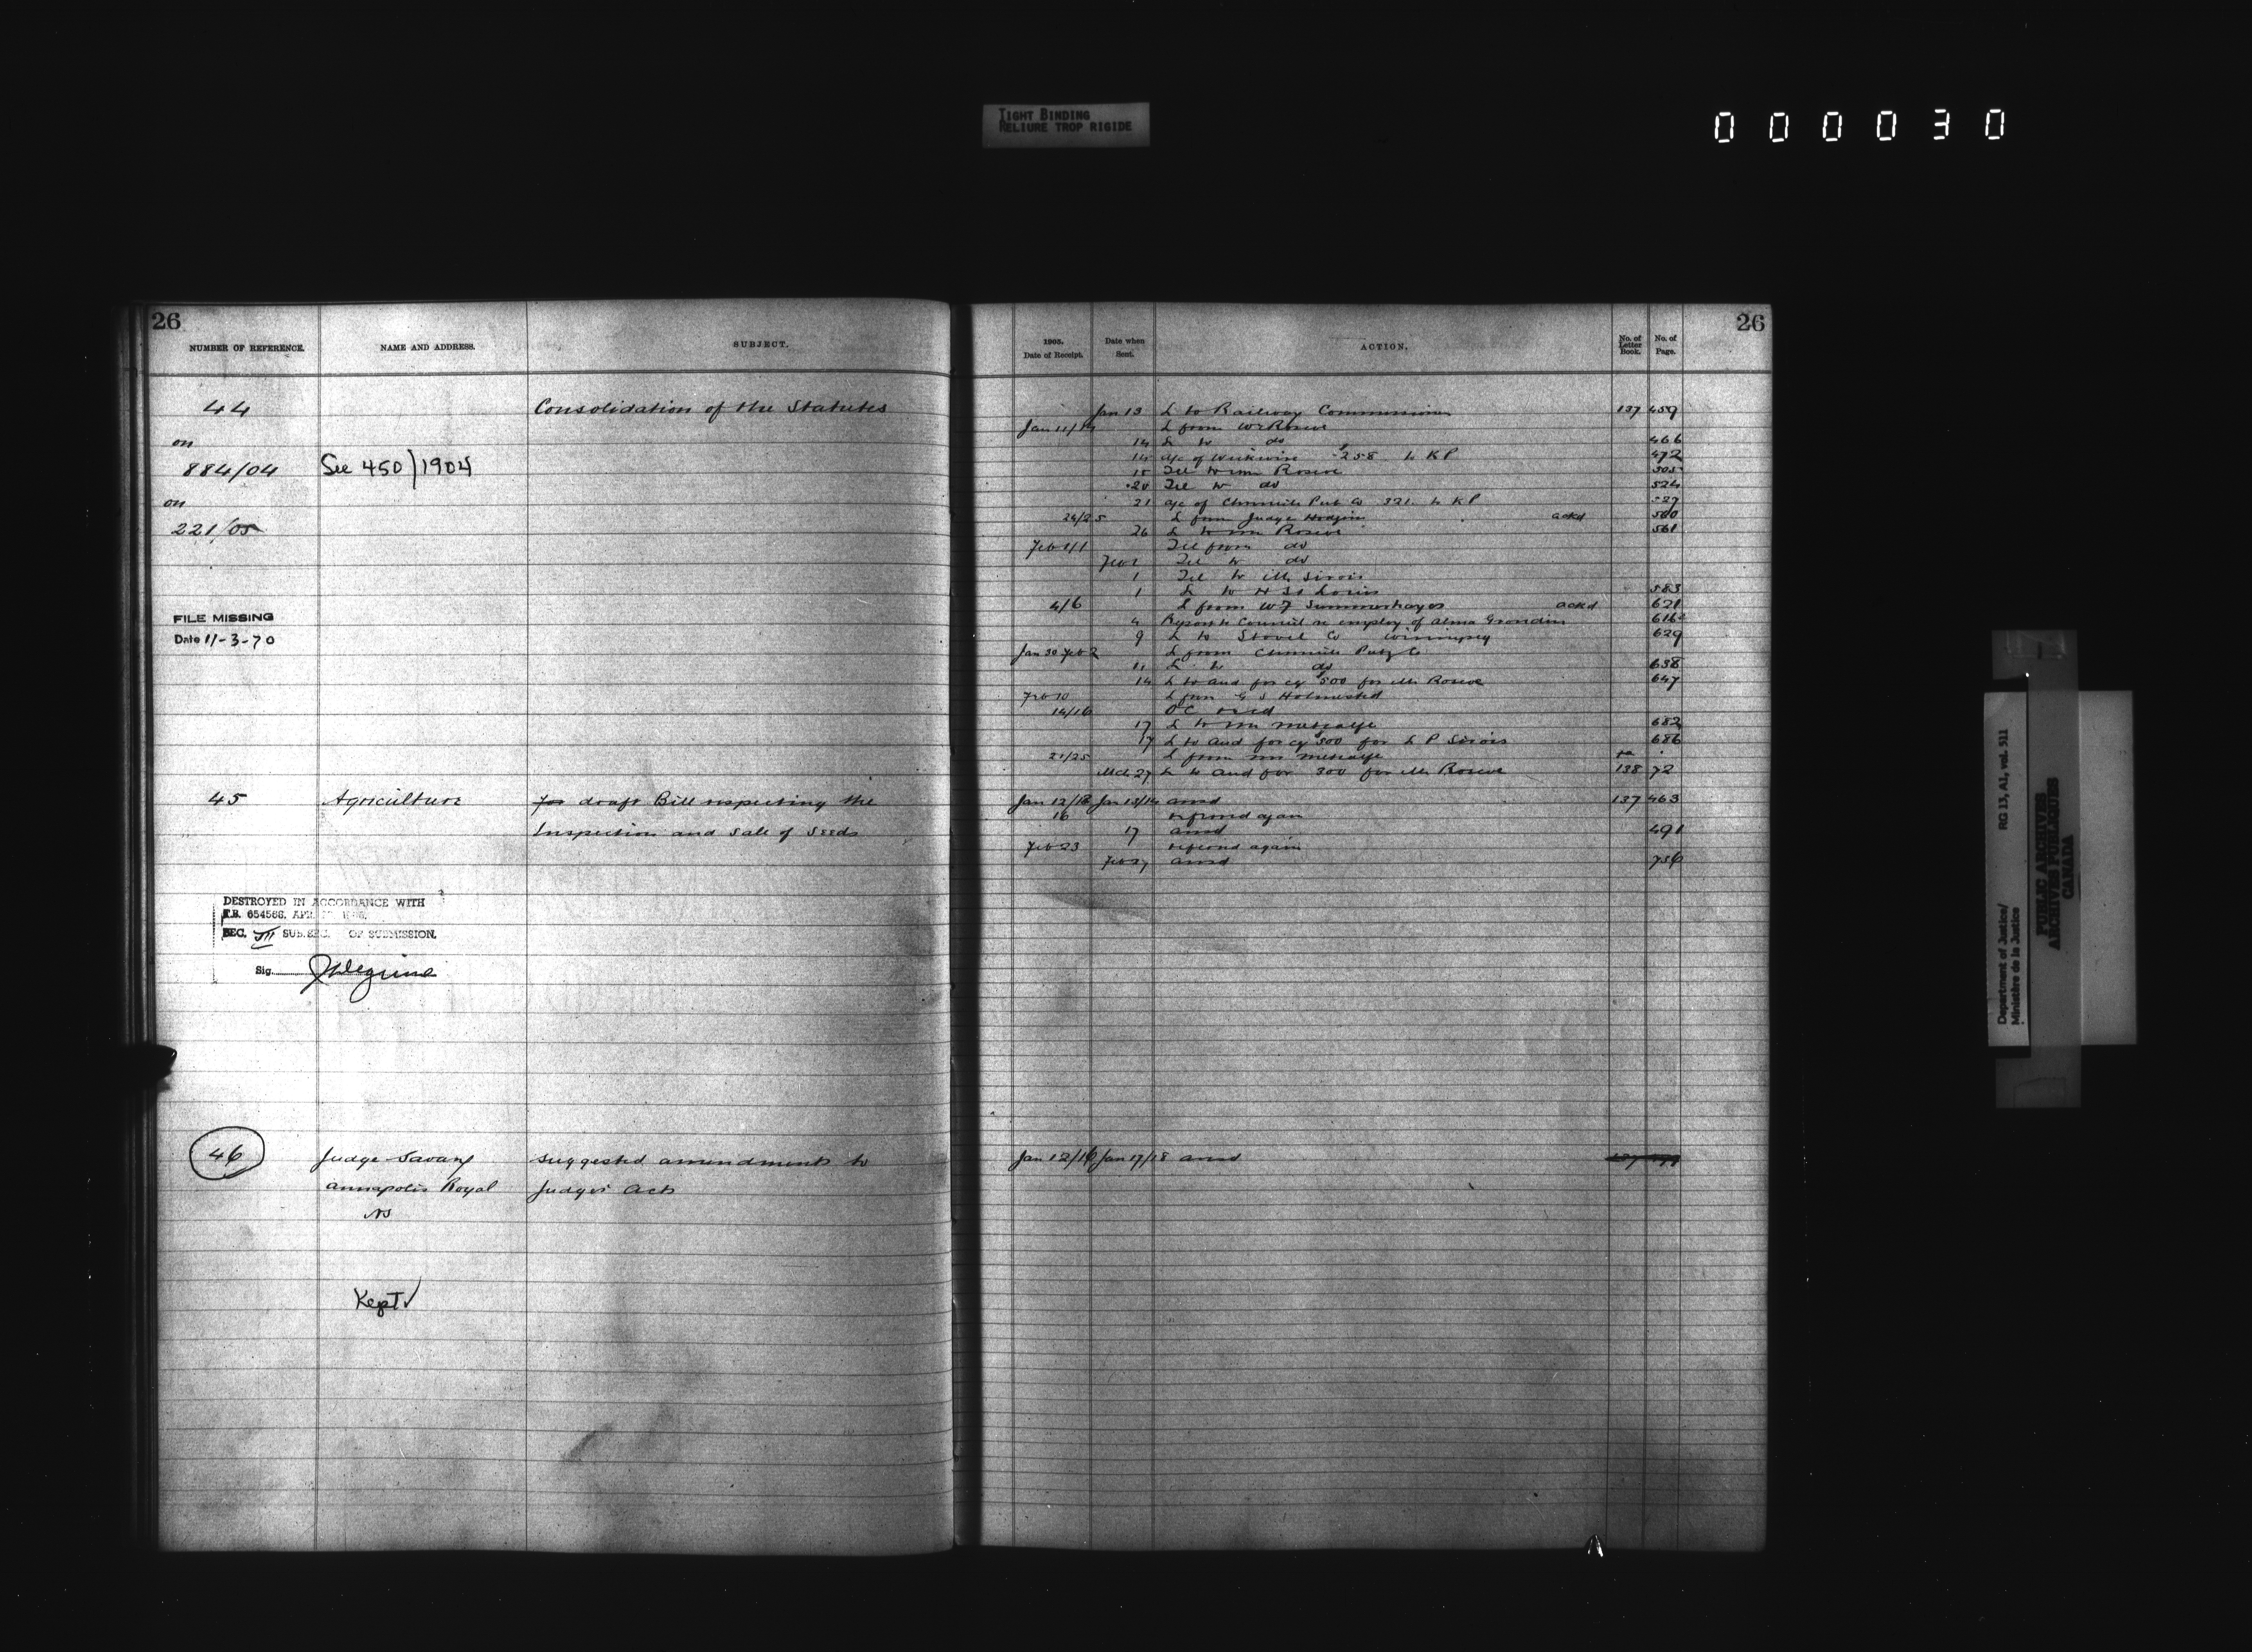 TIGHT BINDING
RELIURE TROP RIGIDE
000030
26
NUMBER OF REFERENCE. NAME AND ADDRESS. SUBJECT.
44 Consolidation of the Statutes
on
884/04 See 450/1904
on
221/05
FILE MISSING
Date 11-3-70
45 Agriculture for draft Bill respecting the
Inspection and Sale of Seeds
DESTROYED IN ACCORDANCE WITH
T.B. 654568. APR.
SEC. III SUB.SEC. OF SUBMISSION.
Sig.
46 Judge Savary suggested amendments to
Annapolis Royal Judges Acts
NS
Kept ✓
26
1905. Date of Receipt. Date when Sent. ACTION. No. of Letter Book. No. of Page.
Jan 13 L to Railway Commission 137 459
L from Wm Roscoe
14 L to do 466
14 a/c of Wickwire $258 to KP 472
Tel to Wm Roscoe 505
20 Tel to do 524
21 a/c of Chronicle Pub Co 321. to KP 527
24/25 L from Judge Hodgins ackd 560
26 L to Wm Roscoe 561
Feb 1/1 Tel from do
Feb 1 Tel to do
1 Tel to M. Sirois
1 L to 583
4/6 L from WF Summerhayes ackd 621
4 Report to Council re employ of Alma Grondin 616
9 L to Stovel Co Winnipeg 629
Jan 30 Feb 2 L from Chronicle Pubg Co
11 L to do 638
14 L to Aud for cq $500 for Mr Roscoe 647
Feb 10 L from G S Holmested
14/16 OC
17 L to Mr Metcalfe 682
17 L to Aud for cq 500 for L P Sirois 686
21/25 L from Mr Metcalfe
Mch 27 L to Aud for 300 for Mr Roscoe 138 72
Jan 12/13 Jan 13/14 ansd 137 463
16 referred again
17 ansd 491
Feb 23 referred again
Feb 27 ansd 756
Jan 12/16 Jan 17/18 ansd
Department of Justice/
Ministère de la Justice
RG 13, A1, vol. 511
PUBLIC ARCHIVES
ARCHIVES PUBLIQUES
CANADA